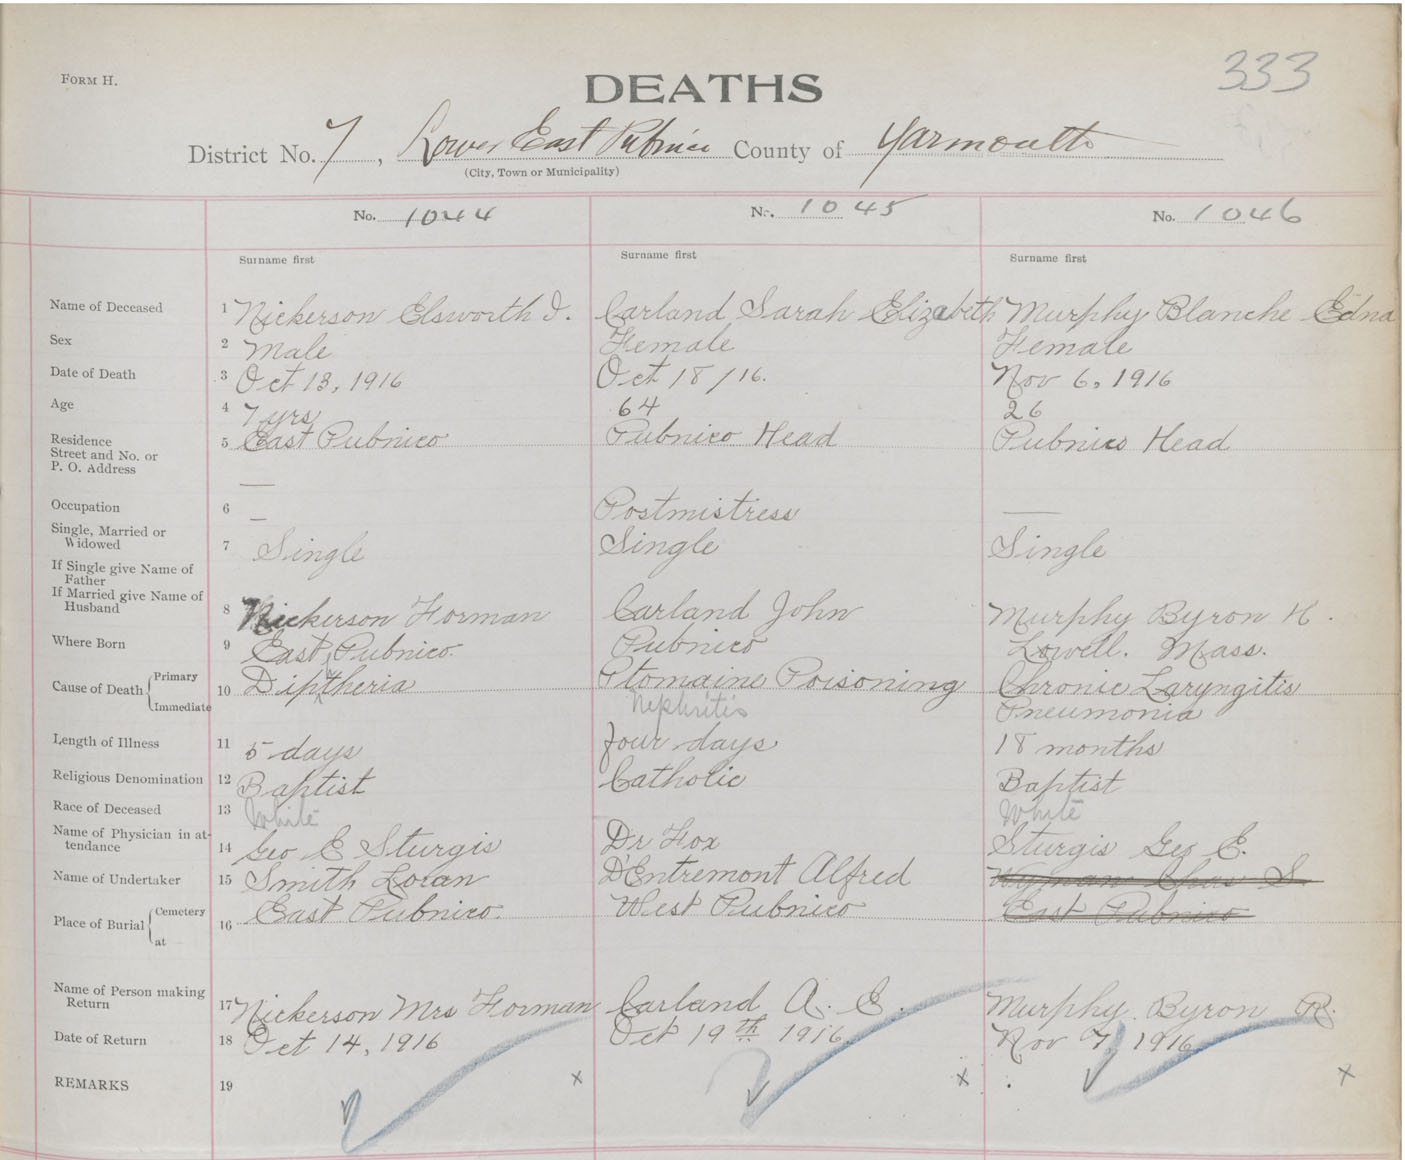 333
FORM H.
DEATHS
District No. 7, Lower East Pubnico County of Yarmouth
(City, Town or Municipality)
No. 1044 No. 1045 No. 1046
Surname first Surname first Surname first
Name of Deceased 1 Nickerson Elsworth I. Carland Sarah Elizabeth Murphy Blanche Edna
Sex 2 Male Female Female
Date of Death 3 Oct 13, 1916 Oct 18/16. Nov 6, 1916
Age 4 7 yrs 64 26
Residence Street and No. or P. O. Address 5 East Pubnico Pubnico Head Pubnico Head
Occupation 6 — Postmistress —
Single, Married or Widowed 7 Single Single Single
If Single give Name of Father
If Married give Name of Husband 8 Nickerson Forman Carland John Murphy Byron H.
Where Born 9 East Pubnico. Pubnico Lowell. Mass.
Cause of Death Primary Immediate 10 Diptheria Ptomaine Poisoning Chronic Laryngitis
Nephritis Pneumonia
Length of Illness 11 5 days four days 18 months
Religious Denomination 12 Baptist Catholic Baptist
Race of Deceased 13 White White
Name of Physician in attendance 14 Geo E Sturgis Dr Fox Sturgis Geo E.
Name of Undertaker 15 Smith Loran D'Entremont Alfred Wyman Chas S.
Place of Burial Cemetery at 16 East Pubnico. West Pubnico East Pubnico
Name of Person making Return 17 Nickerson Mrs Forman Carland A. E. Murphy. Byron R.
Date of Return 18 Oct 14, 1916 Oct 19th 1916. Nov 7, 1916
REMARKS 19 x x x